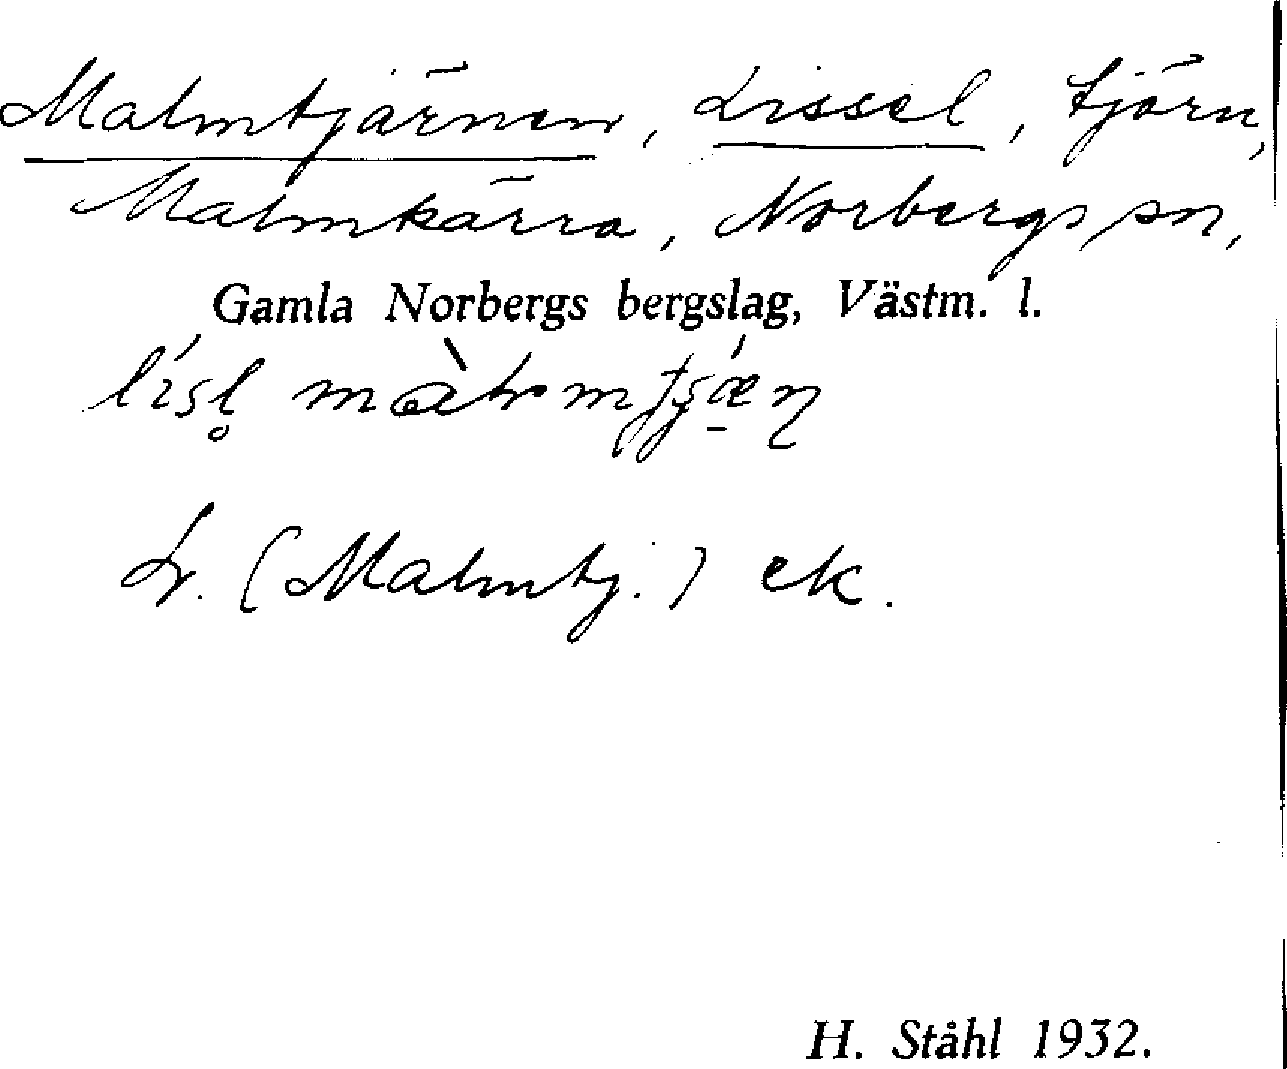 Malmtjärnen, Lissel, tjärn,
Malmkärra, Norbergs sn,
Gamla Norbergs bergslag, Västm. l.
(Malmtj.) ek.
H. Ståhl 1932.